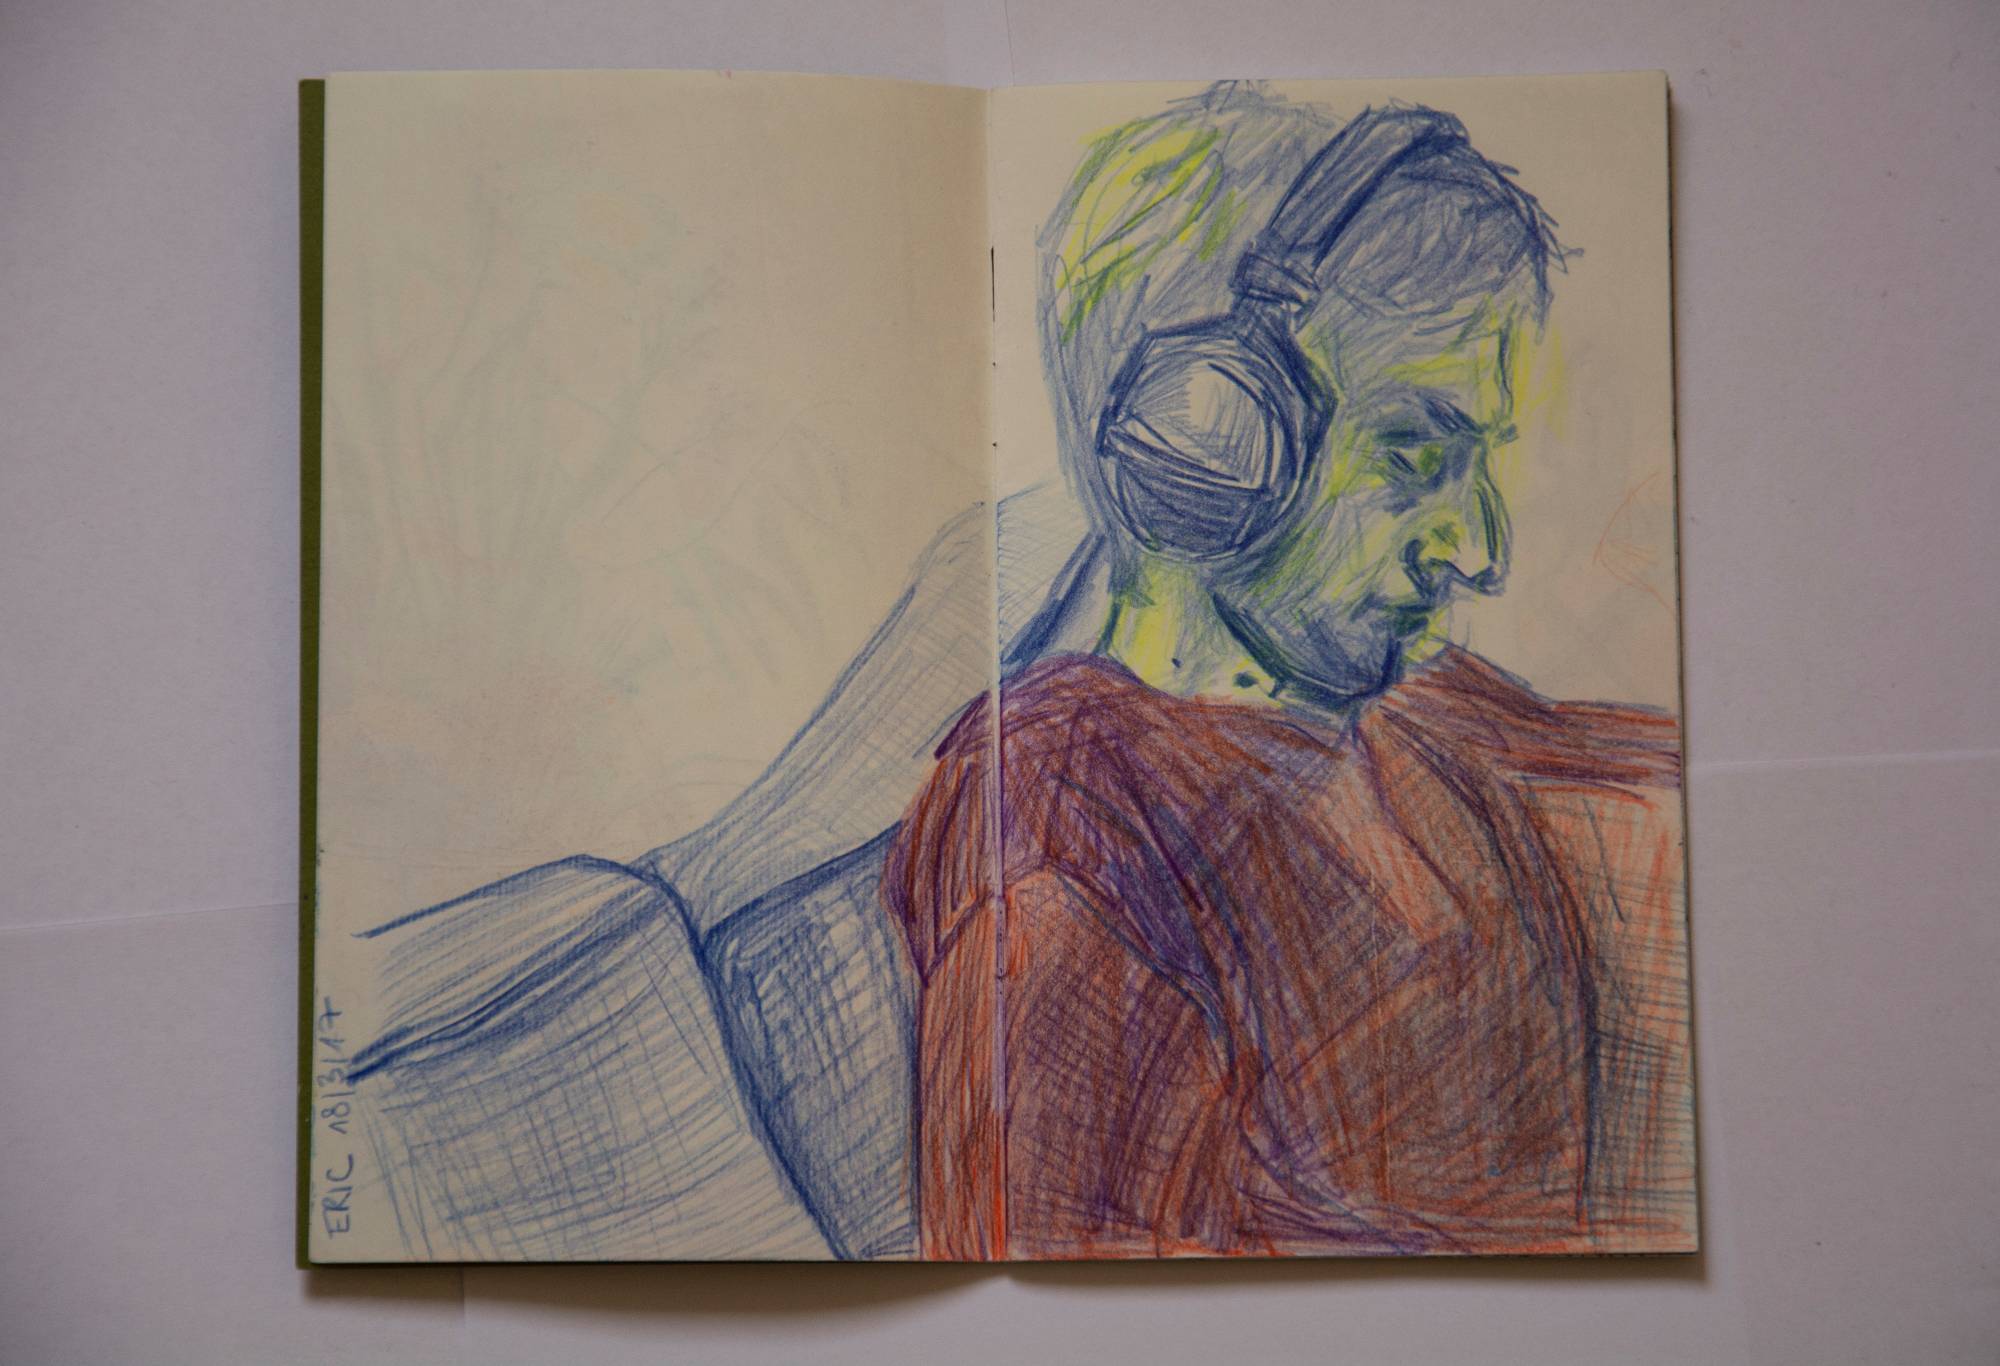 ERIC 18/3/17